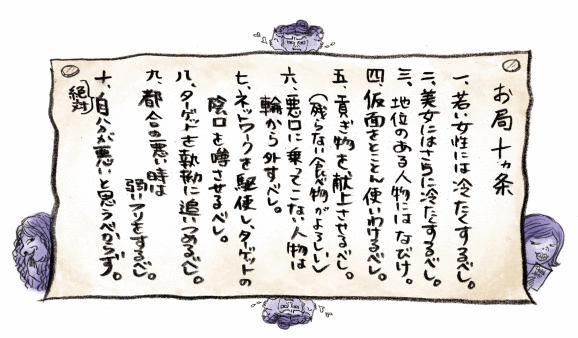 お局十ヵ条
一、若い女性には冷たくするべし。
二、美女にはさらに冷たくするべし。
三、地位のある人物にはなびけ。
四、仮面をとことん使いわけるべし。
五、貢ぎ物を献上させるべし。
(残らない食べ物がよろしい)
六、悪口に乗ってこない人物は
輪から外すべし。
七、ネットワークを駆使し、ターゲットの
陰口を噂させるべし。
八、ターゲットを執拗に追いつめるべし。
九、都合の悪い時は
弱いフリをするべし。
十、自分が悪いと思うべからず。
絶対